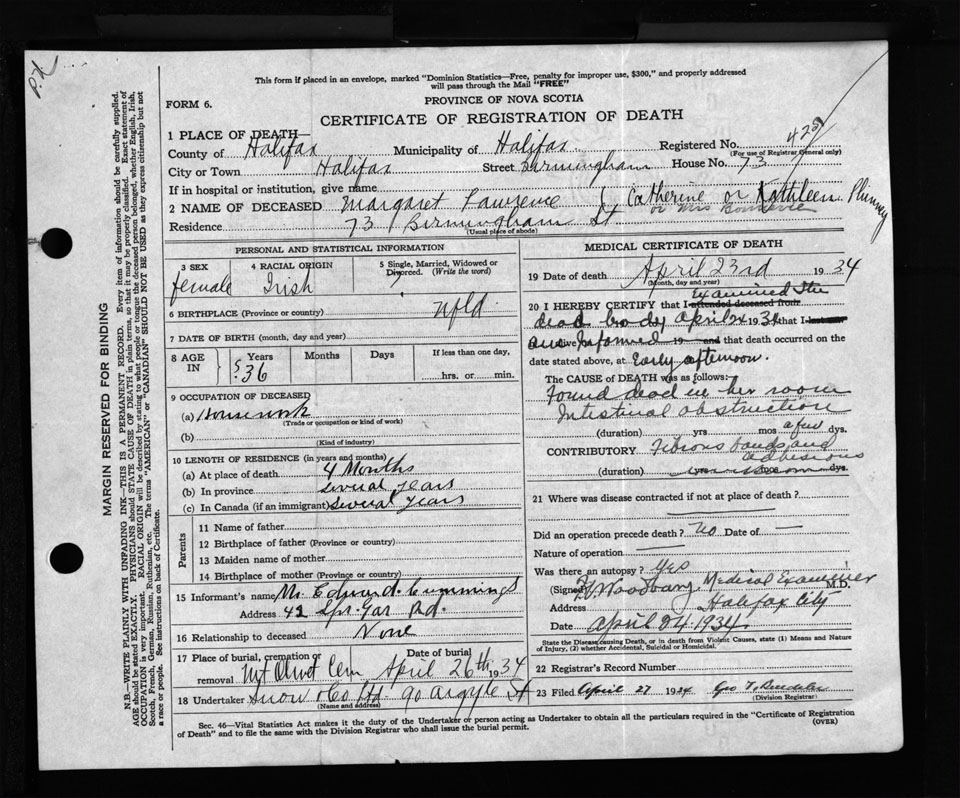 P.X
This form if placed in an envelope, marked "Dominion Statistics—Free, penalty for improper use, $300," and properly addressed
will pass through the Mail "FREE"
PROVINCE OF NOVA SCOTIA
FORM 6.
CERTIFICATE OF REGISTRATION OF DEATH
1 PLACE OF DEATH—
County of Halifax Municipality of Halifax Registered No. 428
(For use of Registrar General only)
City or Town Halifax Street Birmingham House No. 73
If in hospital or institution, give name
2 NAME OF DECEASED Margaret Lawrence Catherine or Kathleen
or Mrs
Residence 73 Birmingham St
(Usual place of abode)
PERSONAL AND STATISTICAL INFORMATION
3 SEX 4 RACIAL ORIGIN 5 Single, Married, Widowed or
Divorced. (Write the word)
female Irish ?
6 BIRTHPLACE (Province or country) Nfld
7 DATE OF BIRTH (month, day and year)
8 AGE IN Years Months Days If less than one day,
? 36 hrs. or min.
9 OCCUPATION OF DECEASED
(a) Housework
(Trade or occupation or kind of work)
(b)
(Kind of industry)
10 LENGTH OF RESIDENCE (in years and months)
(a) At place of death 4 Months
(b) In province several years
(c) In Canada (if an immigrant) several years
Parents
11 Name of father
12 Birthplace of father (Province or country)
13 Maiden name of mother
14 Birthplace of mother (Province or country)
15 Informant's name Mr. Edward Cummings
Address 42 Spr. Gar Rd.
16 Relationship to deceased None
17 Place of burial, cremation or Date of burial
removal Mt Olivet Cem April 26th 1934
18 Undertaker Snow & Co Ltd 90 Argyle St
(Name and address)
MEDICAL CERTIFICATE OF DEATH
19 Date of death April 23rd 1934
(Month, day and year)
20 I HEREBY CERTIFY that I attended deceased from Examined the
dead body April 24 1934 that I last saw
alive informed 19 and that death occurred on the
date stated above, at Early afternoon.
The CAUSE of DEATH was as follows:
Found dead in her room
Intestinal obstruction
(duration) yrs mos a few dys.
CONTRIBUTORY Fibrous bands and
adhesions
(duration) dys.
21 Where was disease contracted if not at place of death?
Did an operation precede death? No Date of —
Nature of operation —
Was there an autopsy? Yes
(Signed) Woodbury Medical Examiner M.D.
Address Halifax City
Date April 24 1934
State the Disease causing Death, or in death from Violent Causes, state (1) Means and Nature
of Injury, (2) whether Accidental, Suicidal or Homicidal.
22 Registrar's Record Number
23 Filed April 27 1934 Geo T.
(Division Registrar)
Sec. 46—Vital Statistics Act makes it the duty of the Undertaker or person acting as Undertaker to obtain all the particulars required in the "Certificate of Registration
of Death" and to file the same with the Division Registrar who shall issue the burial permit. (OVER)
MARGIN RESERVED FOR BINDING
N.B.—WRITE PLAINLY WITH UNFADING INK—THIS IS A PERMANENT RECORD. Every item of information should be carefully supplied.
AGE should be stated EXACTLY. PHYSICIANS should STATE CAUSE OF DEATH in plain terms, so that it may be properly classified. Exact statement of
OCCUPATION is very important. RACIAL ORIGIN will be described by stating to what people or tongue the deceased person belonged, whether English, Irish,
Scotch, French, German, Russian, Ruthenian, etc. The terms "AMERICAN" or "CANADIAN" SHOULD NOT BE USED as they express citizenship but not
a race or people. See instructions on back of Certificate.